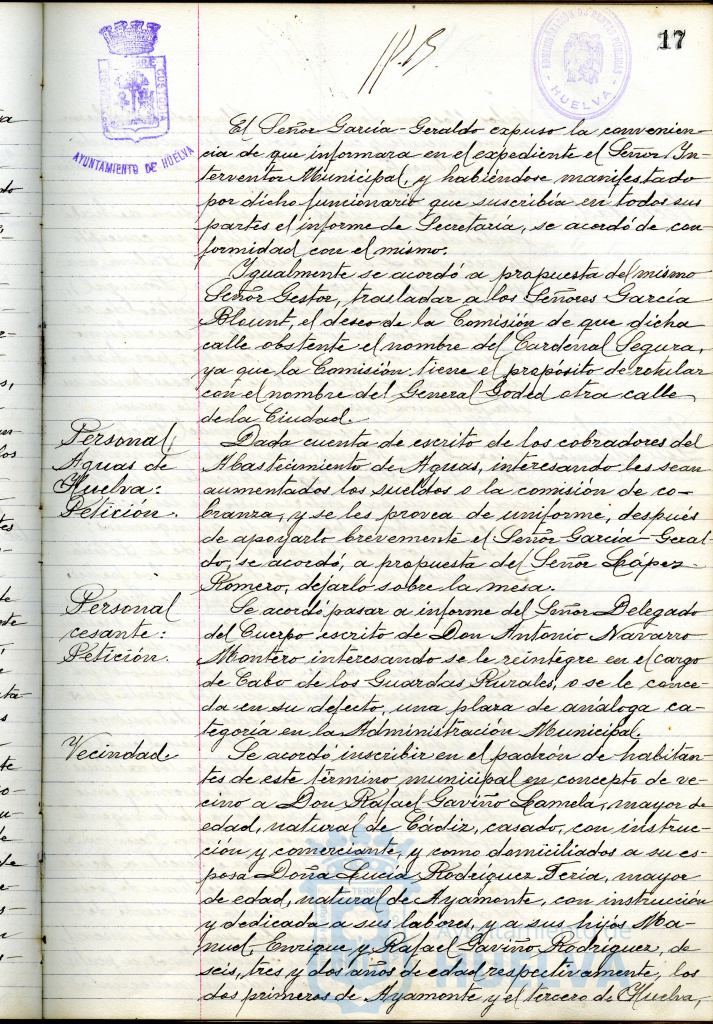 17
AYUNTAMIENTO DE HUELVA
HUELVA
El Señor García-Geraldo expuso la convenien-
cia de que informara en el expediente el Señor In-
terventor Municipal, y habiéndose manifestado
por dicho funcionario que suscribía en todas sus
partes el informe de Secretaría, se acordó de con-
formidad con el mismo.
Igualmente se acordó a propuesta del mismo
Señor Gestor, trasladar a los Señores García
Blount, el deseo de la Comisión de que dicha
calle obstente el nombre del Cardenal Segura,
ya que la Comisión tiene el propósito de rotular
con el nombre del General Goded otra calle
de la Ciudad.
Personal,
Aguas de
Huelva:
Petición.
Dada cuenta de escrito de los cobradores del
Abastecimiento de Aguas, interesando les sean
aumentados los sueldos o la comisión de co-
branza, y se les provea de uniforme, después
de apoyarlo brevemente el Señor García-Geral-
do, se acordó, a propuesta del Señor López-
Romero, dejarlo sobre la mesa.
Personal
cesante:
Petición.
Se acordó pasar a informe del Señor Delegado
del Cuerpo escrito de Don Antonio Navarro
Montero interesando se le reintegre en el cargo
de Cabo de los Guardas Rurales, o se le conce-
da en su defecto, una plaza de análoga ca-
tegoría en la Administración Municipal.
Vecindad.
Se acordó inscribir en el padrón de habitan-
tes de este término municipal en concepto de ve-
cino a Don Rafael Gaviño Lamela, mayor de
edad, natural de Cádiz, casado, con instruc-
ción y comerciante, y como domiciliados a su es-
posa Doña Lucía Rodríguez Feria, mayor
de edad, natural de Ayamonte, con instrucción
y dedicada a sus labores, y a sus hijos Ma-
nuel, Enrique y Rafael Gaviño Rodríguez, de
seis, tres y dos años de edad respectivamente, los
dos primeros de Ayamonte y el tercero de Huelva,
Ayuntamiento de
HUELVA